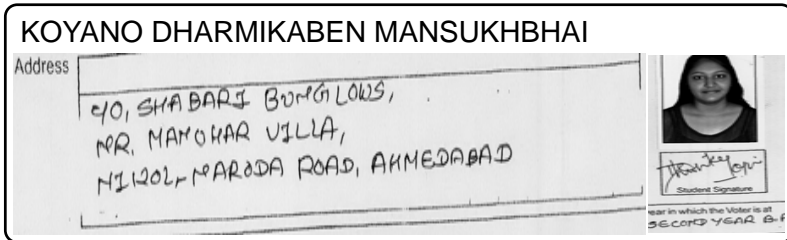 KOYANO DHARMIKABEN MANSUKHBHAI
Address
C/O, SHABARI BUNGLOWS,
NR. MANOHAR VILLA,
NIKOL-NARODA ROAD, AHMEDABAD
Student Signature
ear in which the Voter is at
SECOND YEAR B.P